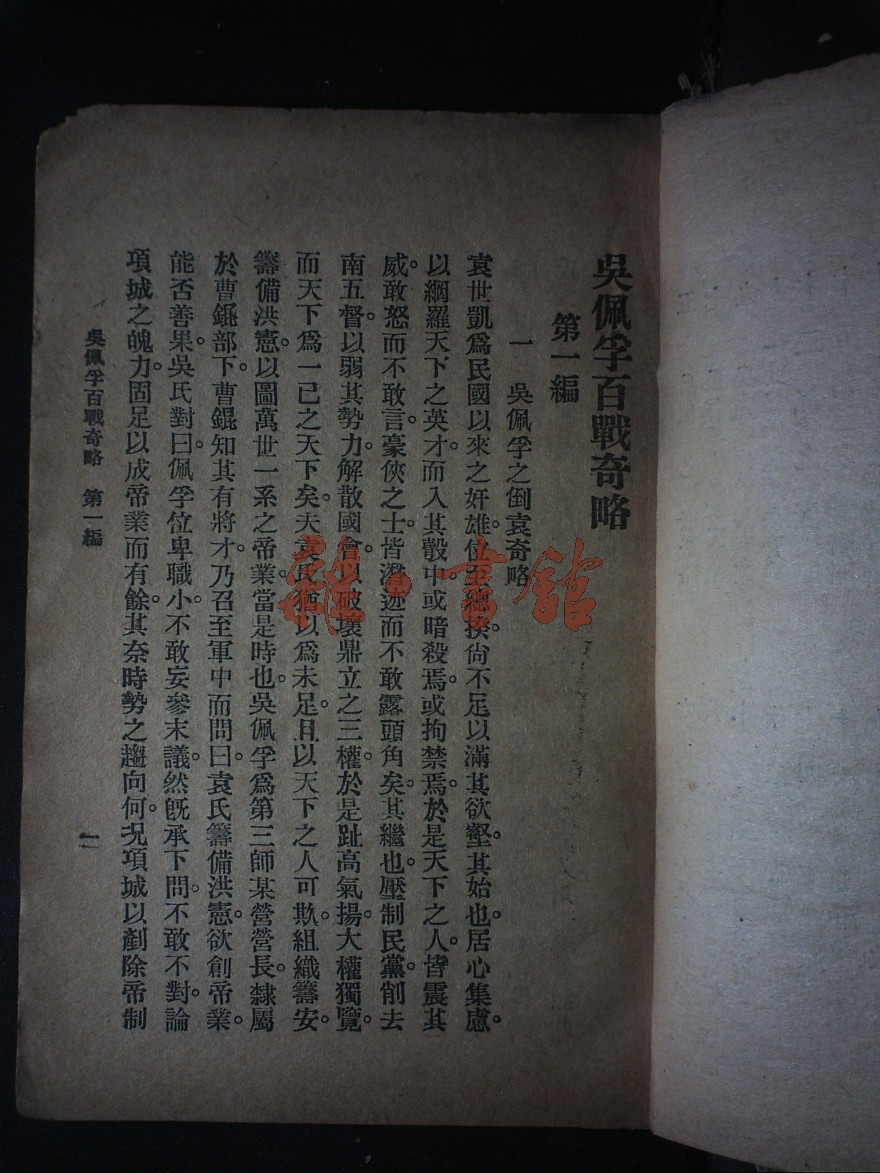 吳佩孚百戰奇略
第一編
一 吳佩孚之倒袁奇略
袁世凱爲民國以來之奸雄。位至總揆。尙不足以滿其欲壑。其始也。居心集慮。
以網羅天下之英才。而入其彀中。或暗殺焉。或拘禁焉。於是天下之人。皆震其
威。敢怒而不敢言。豪俠之士。皆潛迹而不敢露頭角矣。其繼也。壓制民黨。削去
南五督。以弱其勢力。解散國會。以破壞鼎立之三權。於是趾高氣揚。大權獨覽。
而天下爲一己之天下矣。夫袁氏猶以爲未足。且以天下之人可欺。組織籌安。
籌備洪憲。以圖萬世一系之帝業。當是時也。吳佩孚爲第三師某營營長。隸屬
於曹錕部下。曹錕知其有將才。乃召至軍中而問曰。袁氏籌備洪憲。欲創帝業。
能否善果。吳氏對曰。佩孚位卑職小。不敢妄參末議。然旣承下問。不敢不對。論
項城之魄力。固足以成帝業而有餘。其奈時勢之趨向何。况項城以剷除帝制
吳佩孚百戰奇略 第一編
一
龍 書館